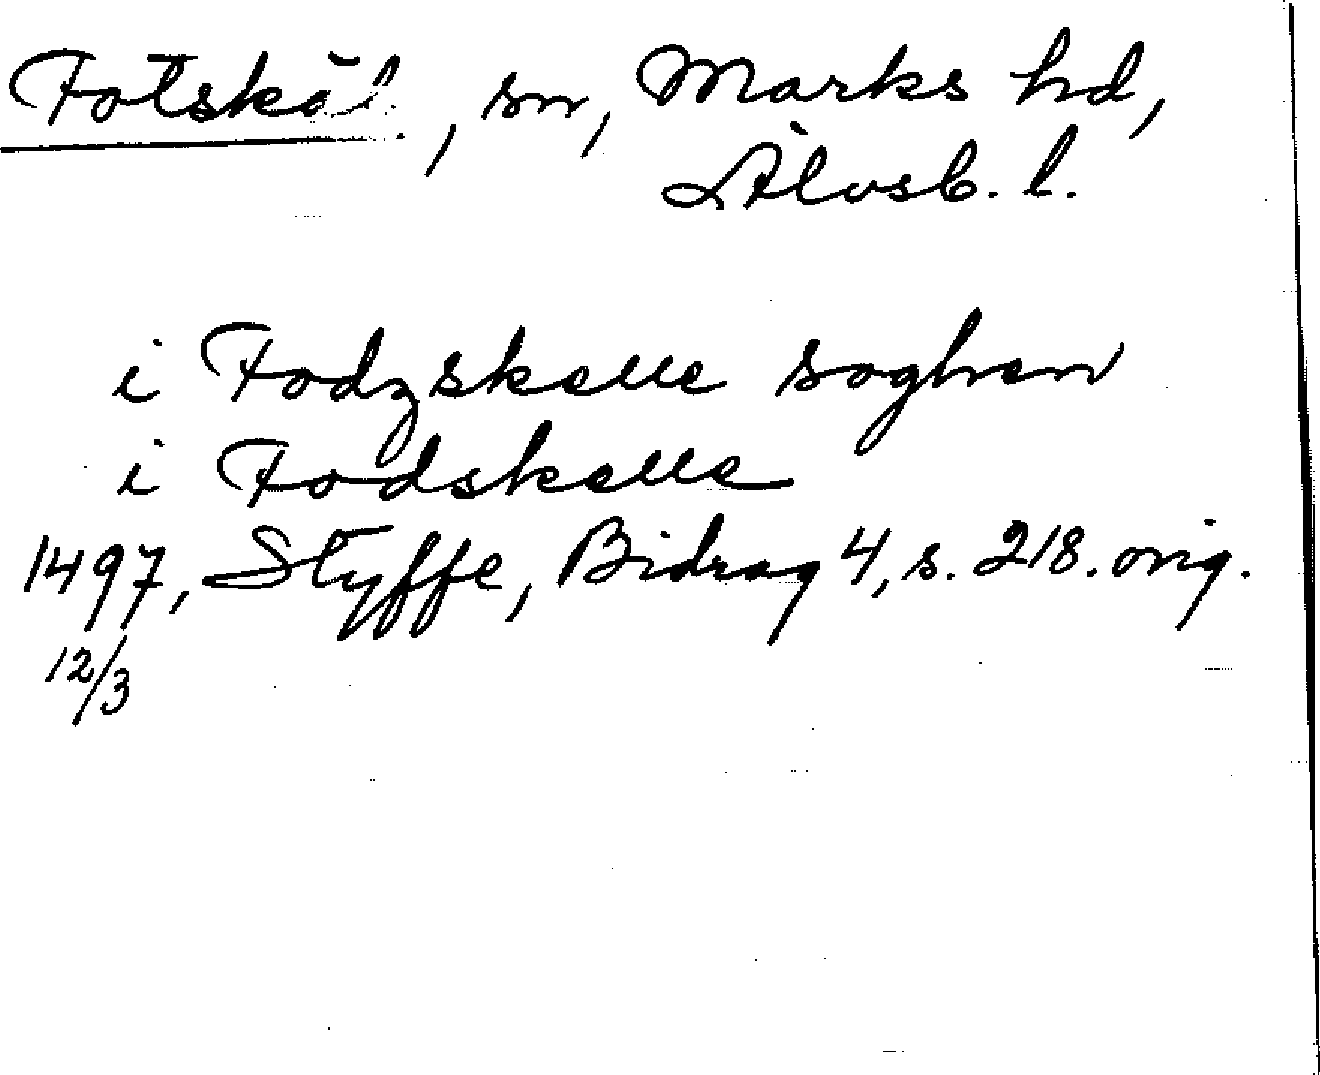 Fotskäl, sn, Marks hd,
Älvsb. l.
i Fodzskelle soghen
i Fodskelle
1497, Styffe, Bidrag 4, s. 218. orig.
12/3